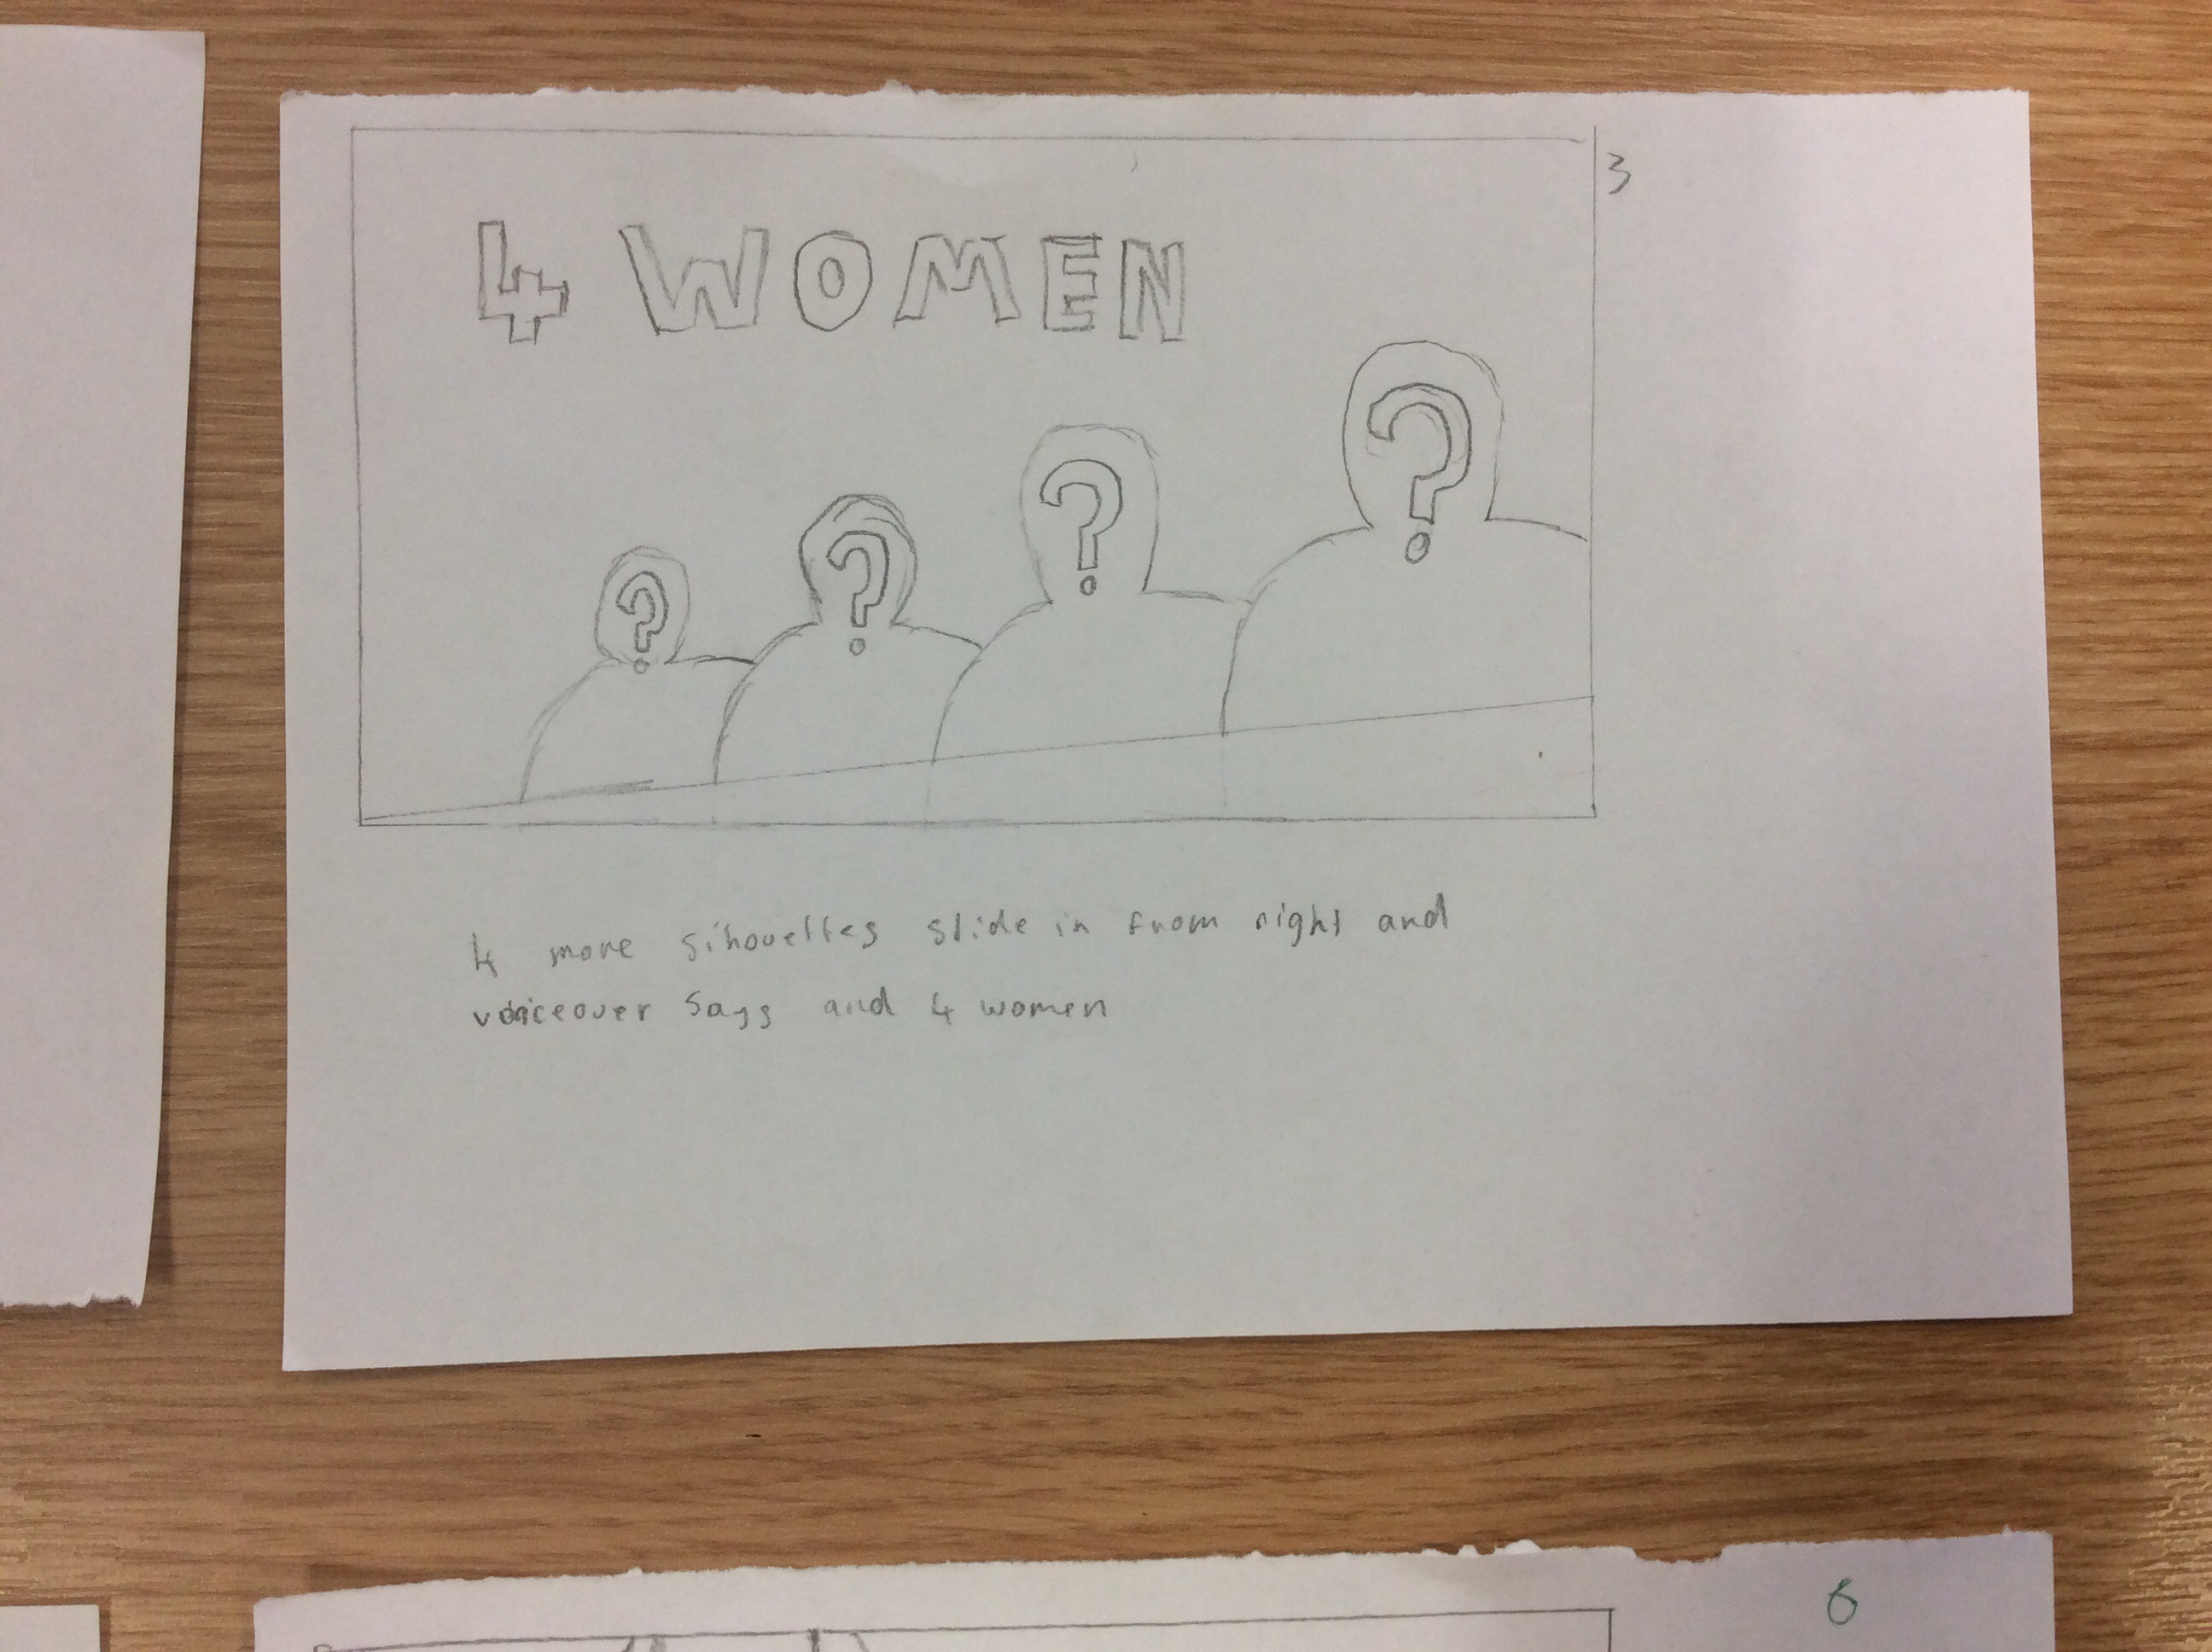 3
4 WOMEN
?
?
?
?
4 more sihouettes slide in from right and
voiceover says and 4 women
6